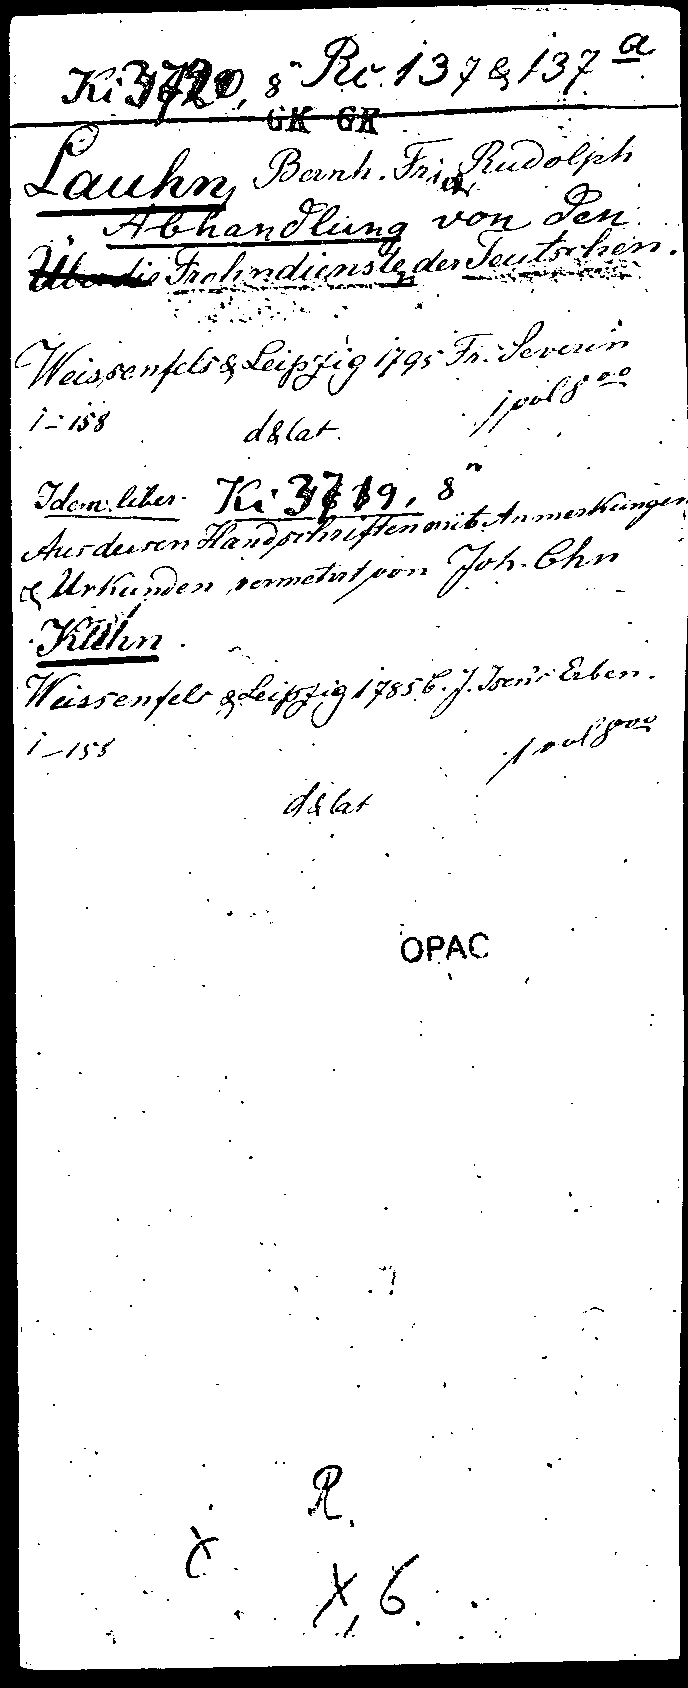 Ki 3720, 8° Rc. 137 & 137 a
GK GK
Lauhn, Bernh. Fried. Rudolph
Abhandlung von den
Über die Frohndiensten der Teutschen.
Weissenfels & Leipzig 1795 Fr. Severin
1-158 d&lat. 1 vol 8°°
Idem liber. Ki 3719, 8°
Aus dessen Handschriften mit Anmerkungen
& Urkunden vermehrt von Joh. Chn
Kühn
Weissenfels & Leipzig 1785 C. J. Erben.
1-158 1 vol 8°°
d&lat
OPAC
R.
X
X, 6